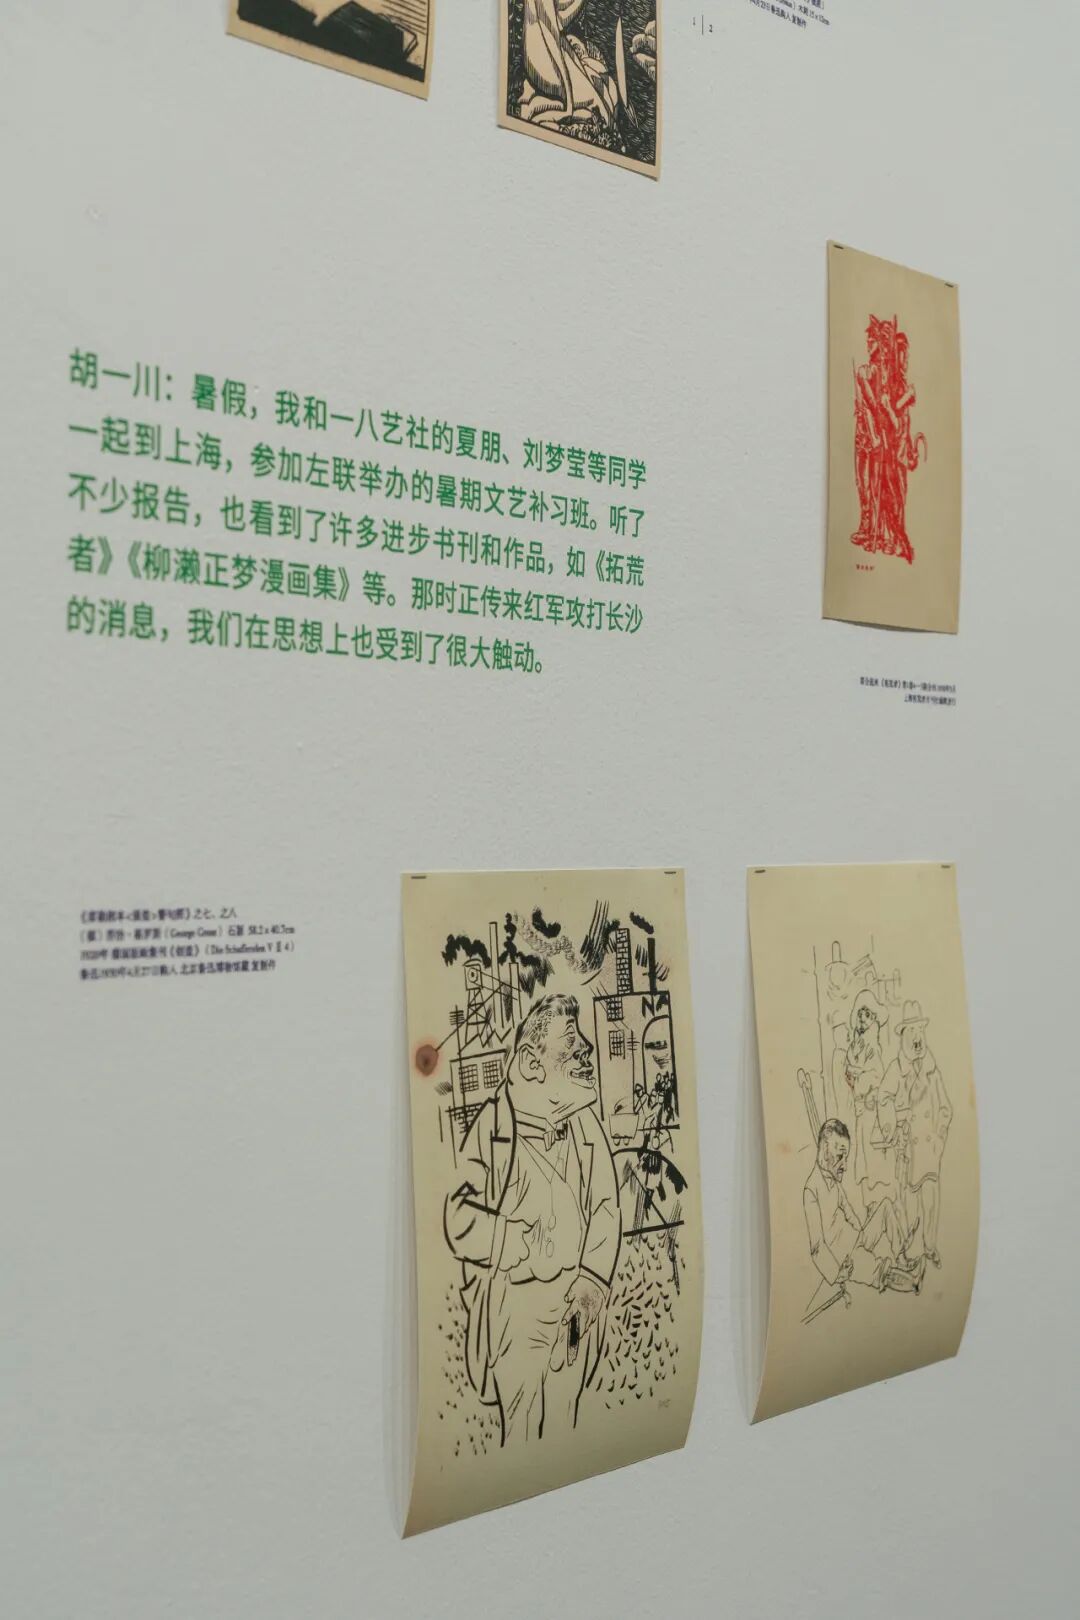 1 | 2
胡一川：暑假，我和一八艺社的夏朋、刘梦莹等同学
一起到上海，参加左联举办的暑期文艺补习班。听了
不少报告，也看到了许多进步书刊和作品，如《拓荒
者》《柳濑正梦漫画集》等。那时正传来红军攻打长沙
的消息，我们在思想上也受到了很大触动。
之七、之八
（George Grosz）石版 58.2 x 40.7cm
1920年 《创造》（Die Schaffenden V II 4）
鲁迅1930年4月27日购入 北京鲁迅博物馆藏 复制件
NA